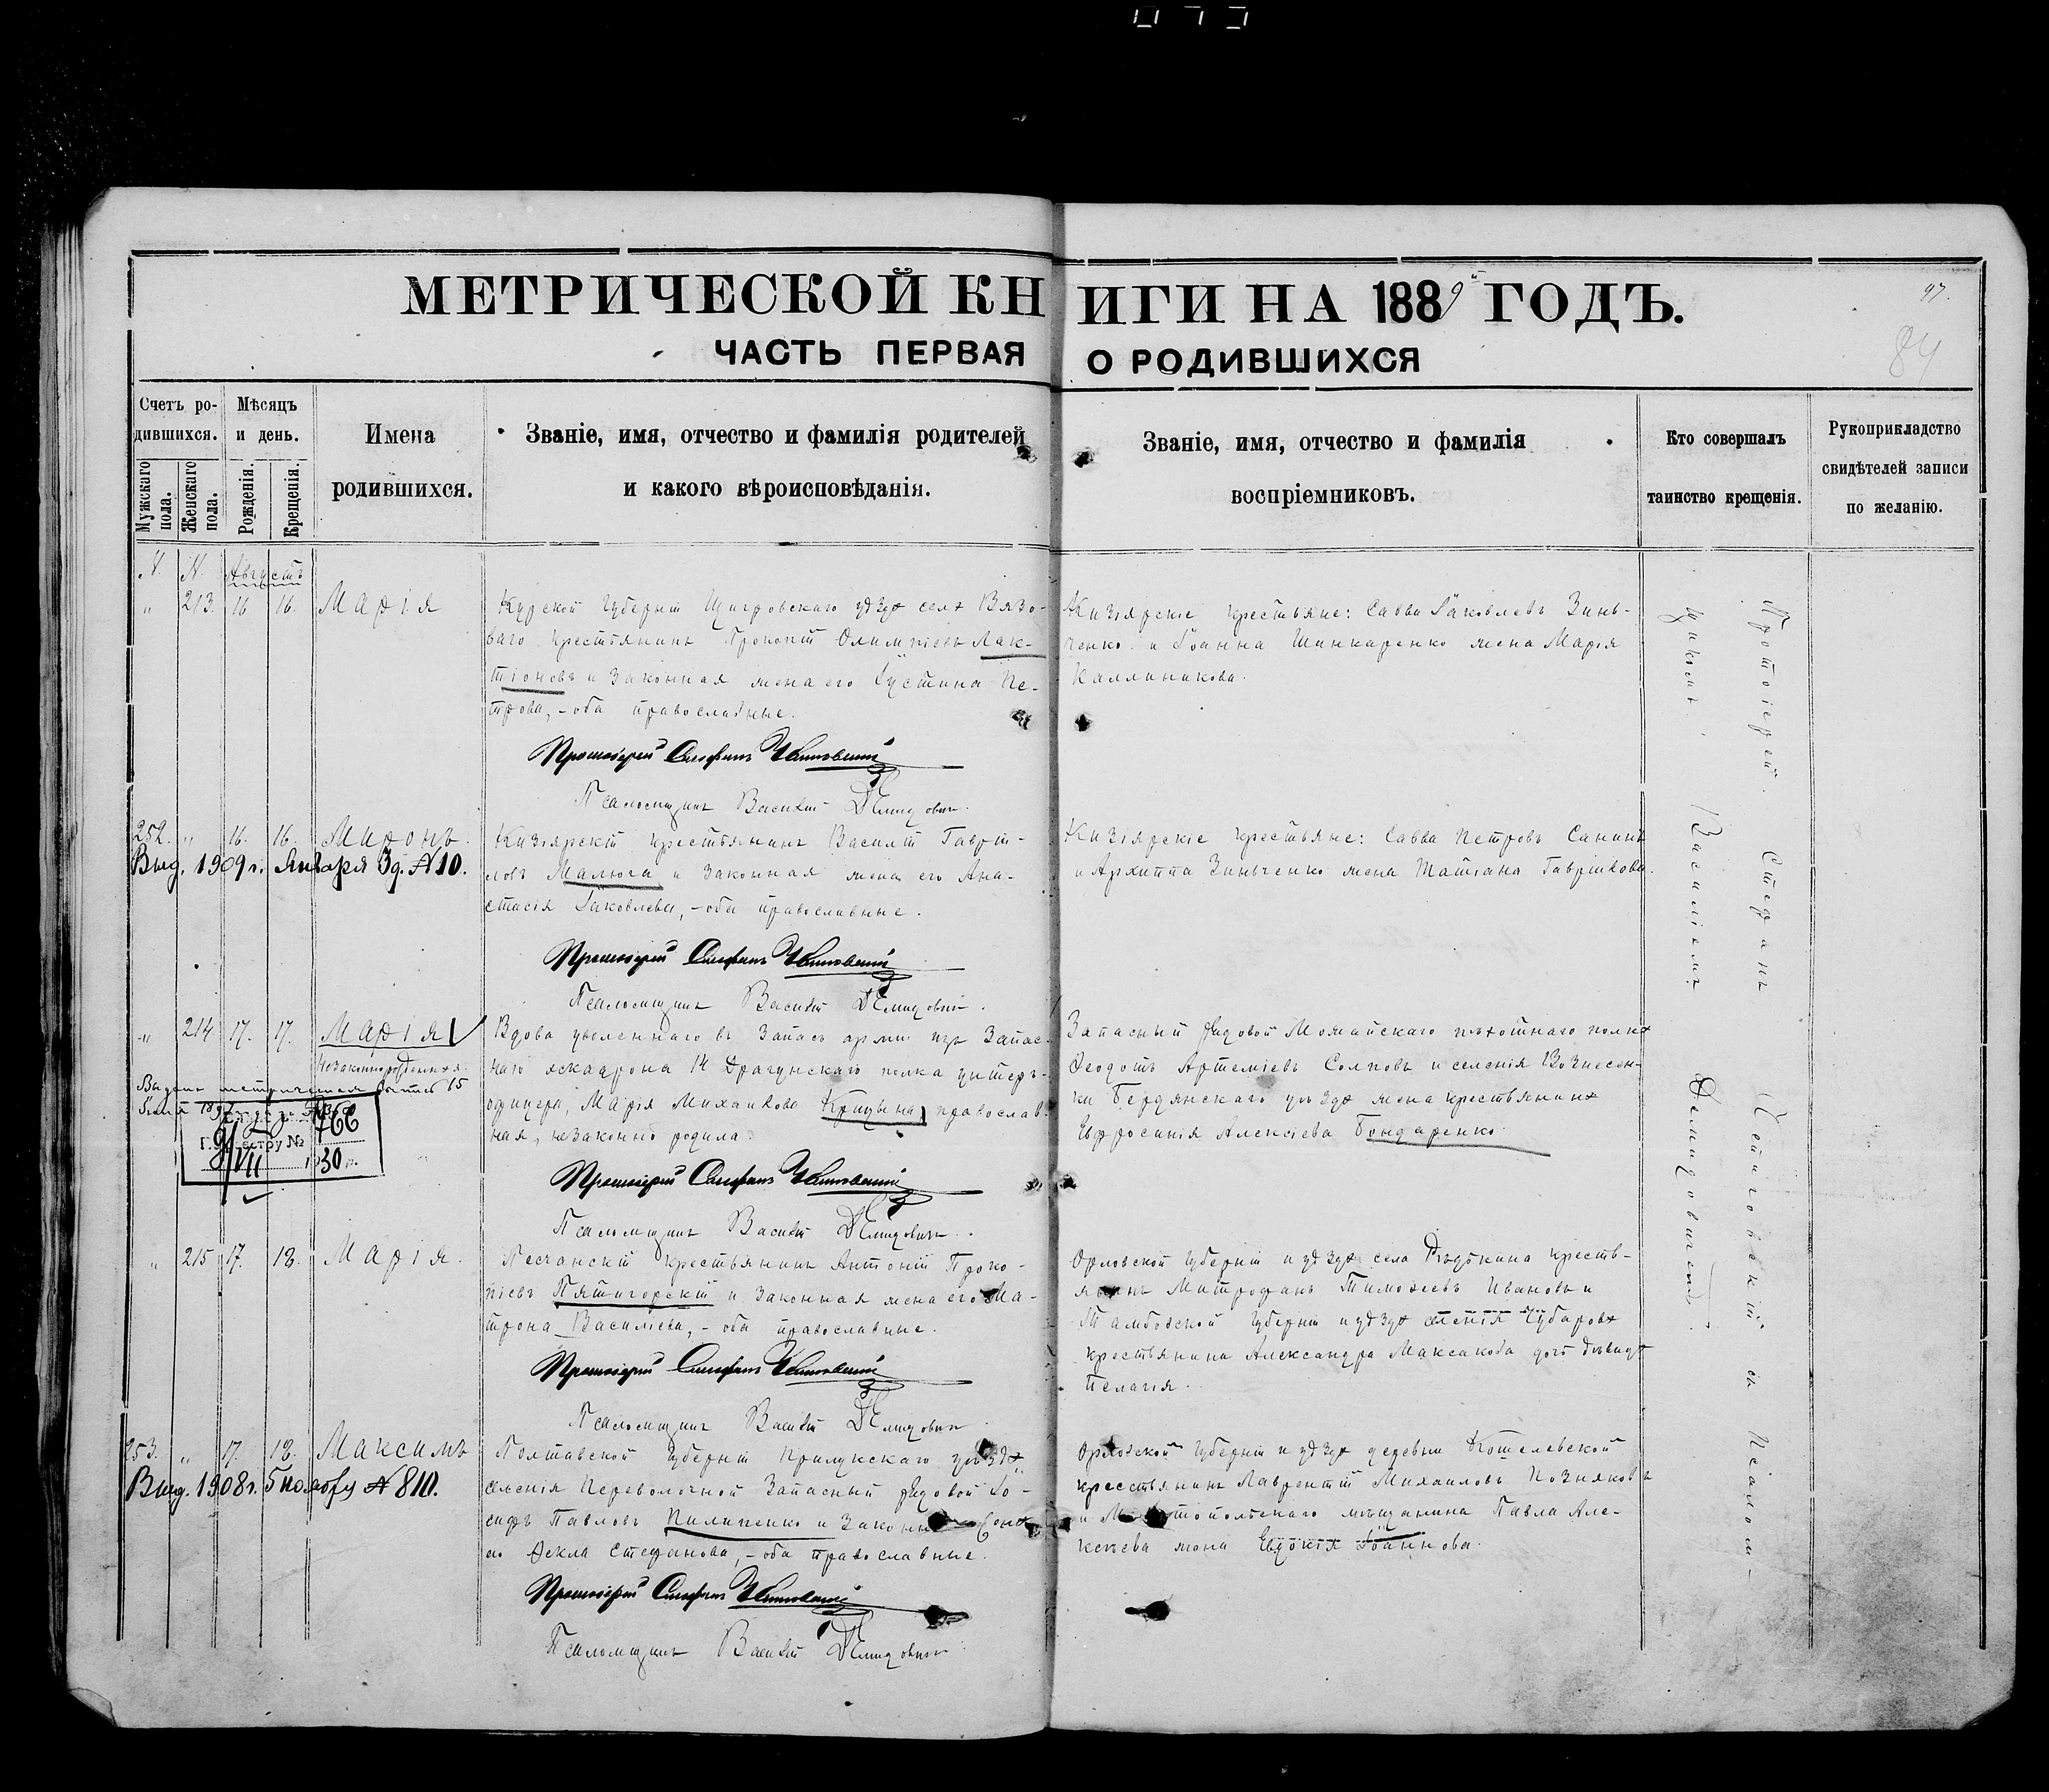 МЕТРИЧЕСКОЙ КНИГИ НА 1889й ГОДЪ.
97.
84
ЧАСТЬ ПЕРВАЯ О РОДИВШИХСЯ
Счетъ родившихся.
Мужскаго пола.
Женскаго пола.
Мѣсяцъ и день.
Рожденія.
Крещенія.
Имена
родившихся.
Званіе, имя, отчество и фамилія родителей
и какого вѣроисповѣданія.
Званіе, имя, отчество и фамилія
воспріемниковъ.
Кто совершалъ
таинство крещенія.
Рукоприкладство
свидѣтелей записи
по желанію.
N. N. Августъ
" 213. 16 16. Марія
Курской губерніи Щигровскаго уѣзда села Вязо-
ваго крестьянинъ Прокопій Олимпіевъ Лак-
тіоновъ и законная жена его Іустина Пе-
трова, - оба православные.
Протоіерей Стефанъ
Псаломщикъ Василій Демидовичъ.
Кизіярскіе крестьяне: Савва Іаковлевъ Зинь-
ченко и Іоанна Шинкаренко жена Марія
Каллиникова.
252. " 16. 16. Миронъ.
Выд. 1909 г. Января 3 д. N 10.
Кизіярскій крестьянинъ Василій Гавріи-
ловъ Малюга и законная жена его Ана-
стасія Іаковлева, - оба православные.
Протоіерей Стефанъ
Псаломщикъ Василій Демидовичъ.
Кизіярскіе крестьяне: Савва Петровъ Санинъ
и Архиппа Зинченко жена Татіана Гавріилова.
" 214 17. 17. Марія
незаконнорожденная.
Выдана метрическая 15
766
9/VII 1930 г.
Вдова уволеннаго въ запасъ арміи изъ запас-
наго эскадрона 14 Драгунскаго полка унтеръ-
офицера, Марія Михаилова Крицына, православ-
ная, незаконно родила.
Протоіерей Стефанъ
Псаломщикъ Василій Демидовичъ.
Запасный рядовой Можайскаго пѣхотнаго полка
Ѳеодотъ Артеміевъ и селенія Вознесен-
ки Бердянскаго уѣзда жена крестьянина
Евфросинія Алексіева Бондаренко.
" 215 17. 18. Марія.
Песчанскій крестьянинъ Антоній Проко-
піевъ Пятигорскій и законная жена его Ма-
трона Василіева, - оба православные.
Протоіерей Стефанъ
Псаломщикъ Василій Демидовичъ
Орловской губерніи и уѣзда села крестья-
янинъ Митрофанъ Тимоѳеевъ Ивановъ и
Тамбовской губерніи и уѣзда селенія
крестьянина Александра Максакова дочь дѣвица
Пелагія.
253. " 17. 18. Максимъ
Выд. 1908 г. 5 ноября N 810.
Полтавской губерніи Прилукскаго уѣзда
селенія Переволочной запасный рядовой Іо-
сифъ Павловъ Пилипенко и законная жена
его Ѳекла Стефанова, - оба православные.
Протоіерей Стефанъ
Псаломщикъ Василій Демидовичъ
Орловской губерніи и уѣзда деревни Кошелевской
крестьянинъ Лаврентій Михаиловъ Позняковъ
и Мелитопольскаго мѣщанина Павла Але-
ксѣева жена Евдокія Іоаннова.
Протоіерей Стефанъ съ Псалом-
щикомъ Василіемъ Демидовичемъ.